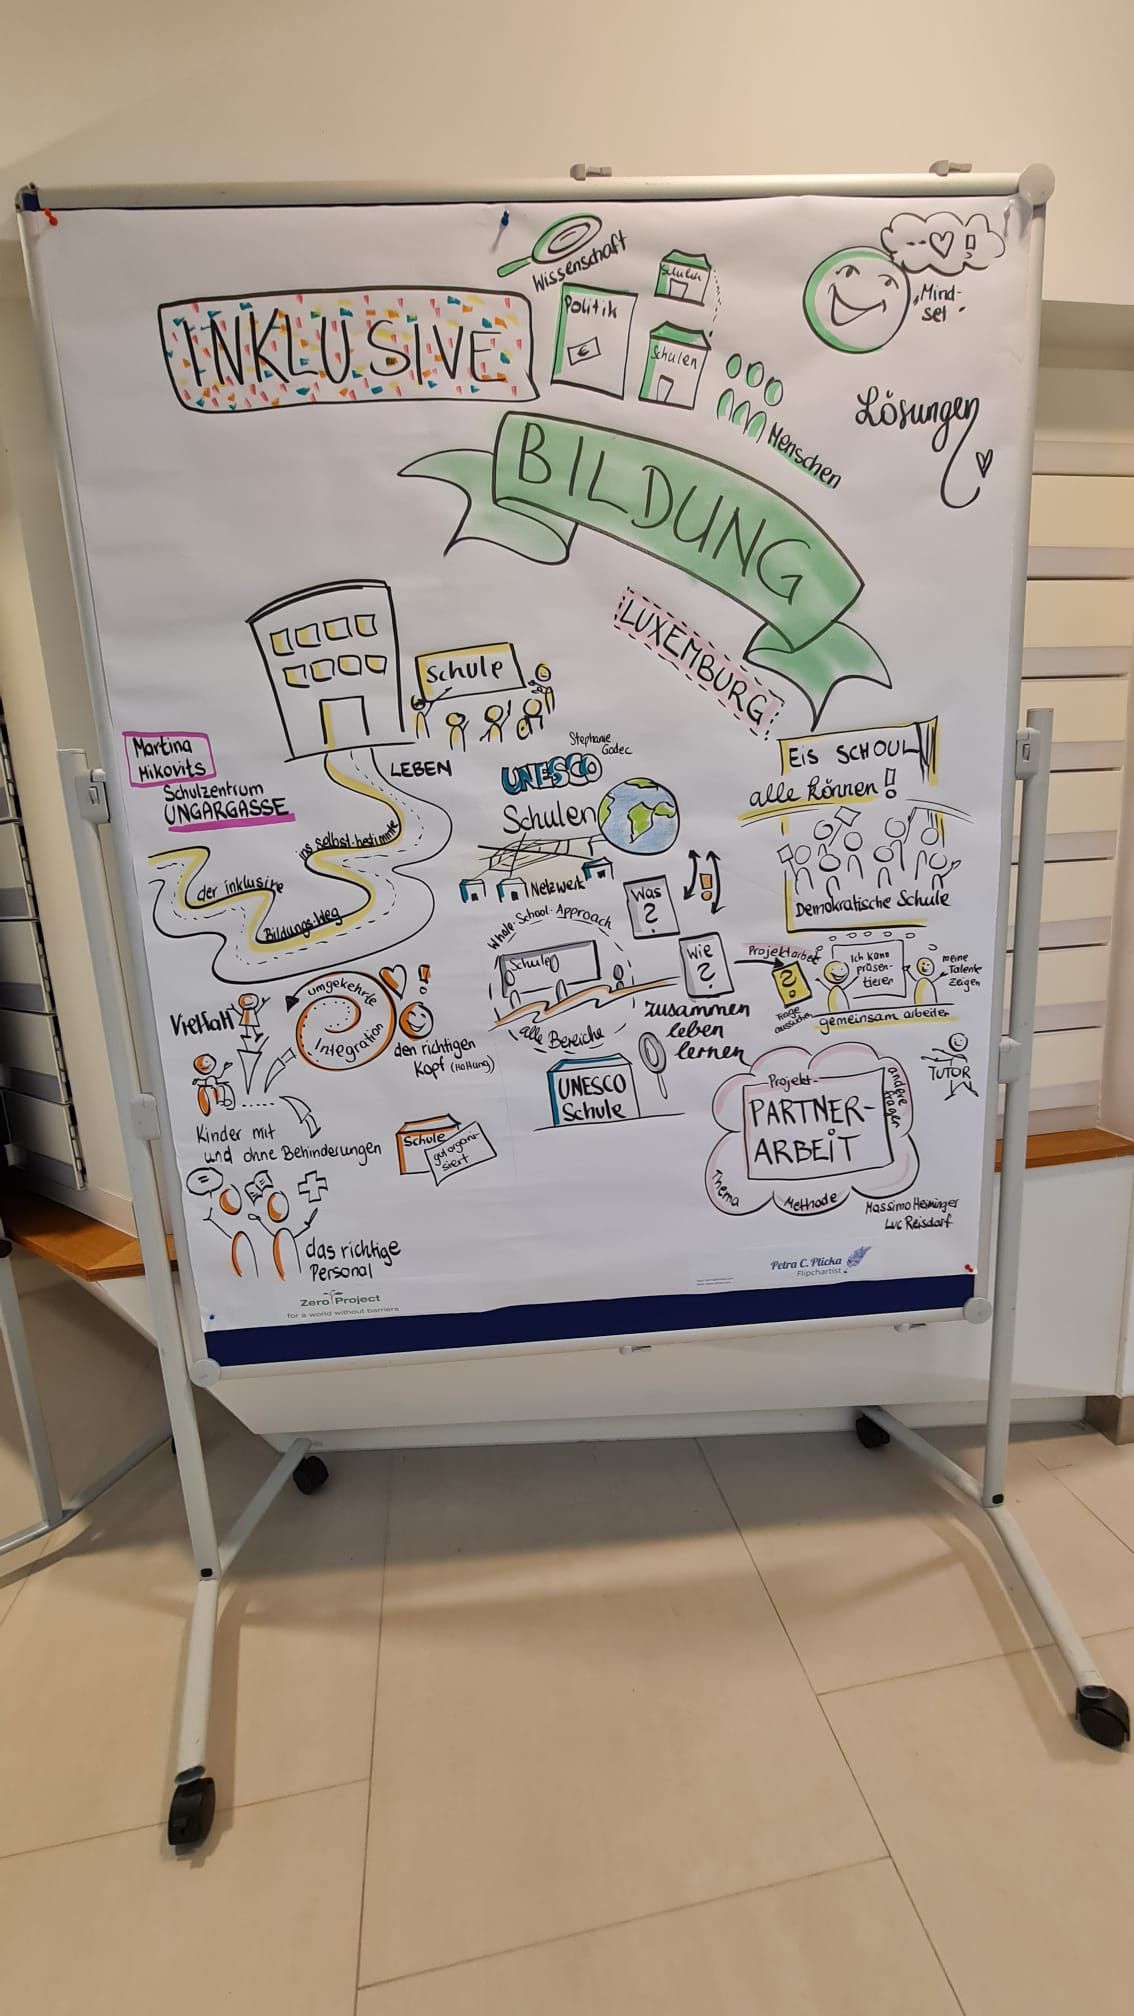 INKLUSIVE
Wissenschaft
Politik
€
Schulen
Schulen
Menschen
Mind-
set
Lösungen
BILDUNG
LUXEMBURG
Schule
LEBEN
Martina
Mikovits
Schulzentrum
UNGARGASSE
der inklusive
Bildungs-Weg
ins selbst-bestimmte
Vielfalt
umgekehrte
Integration
den richtigen
Kopf (Haltung)
Kinder mit
und ohne Behinderungen
Schule
gut organi-
siert
das richtige
Personal
Stephanie
Godec
UNESCO
Schulen
Netzwerk
Whole-School-Approach
Schule
alle Bereiche
Was
?
Wie
?
zusammen
leben
lernen
UNESCO
Schule
EIS SCHOUL
alle können!
Demokratische Schule
Projektarbeit
?
Frage
aussuchen
Ich kann
präsen-
tieren
meine
Talente
zeigen
gemeinsam arbeiten
TUTOR
Projekt-
PARTNER-
ARBEIT
andere fragen
Thema
Methode
Massimo Heiminger
Luc Reisdorf
Petra C. Plicka
Flipchartist
Zero Project
for a world without barriers